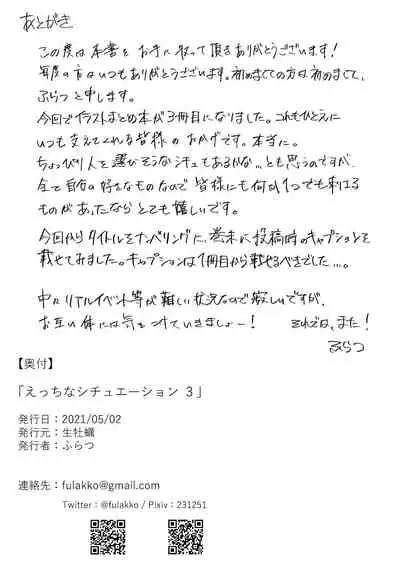 あとがき
この度は本書をお手に取って頂きありがとうございます！
毎度の方はいつもありがとうございます。初めましての方は初めまして、
ふらつと申します。
今回でイラストまとめ本が3冊目になりました。これもひとえに
いつも支えてくれる皆様のおかげです。本当に。
ちょっぴり人を選びそうなシチュもあるかな…とも思うのですが、
全て自分の好きなものなので皆様にも何か1つでも刺さる
ものがあったならとても嬉しいです。
今回からタイトルをナンバリングに、巻末に投稿時のキャプションを
載せてみました。キャプションは1冊目から載せるべきでした…。
中々リアルイベント等が難しい状況なので寂しいですが、
お互い体には気をつけていきましょー！ それでは、また！
ふらつ
【奥付】
「えっちなシチュエーション 3」
発行日：2021/05/02
発行元：生牡蠣
発行者：ふらつ
連絡先：fulakko@gmail.com
Twitter：@fulakko / Pixiv：231251